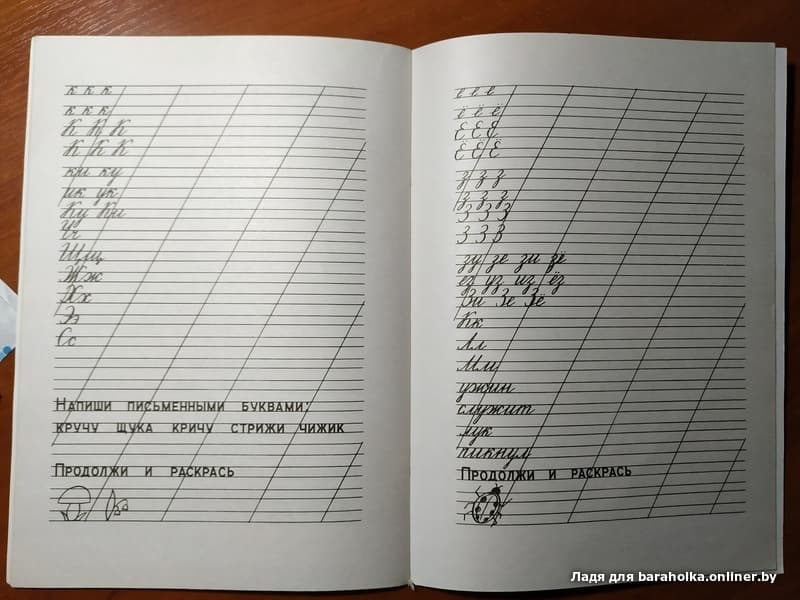 к к к
к к к
К К К
К К К
ки ку
ик ук
Ку Ки
Чч
Щщ
Жж
Хх
Ээ
Сс
НАПИШИ ПИСЬМЕННЫМИ БУКВАМИ:
КРУЧУ ЩУКА КРИЧУ СТРИЖИ ЧИЖИК
ПРОДОЛЖИ И РАСКРАСЬ
е е е
ё ё ё
Е Е Е
Ё Ё Ё
з з з
з з з
З З З
З З З
зу зе зи зё
ез уз из ёз
Зи Зе Зё
Кк
Лл
Мм
ужин
служит
лук
пикнул
ПРОДОЛЖИ И РАСКРАСЬ
Ладя для baraholka.onliner.by